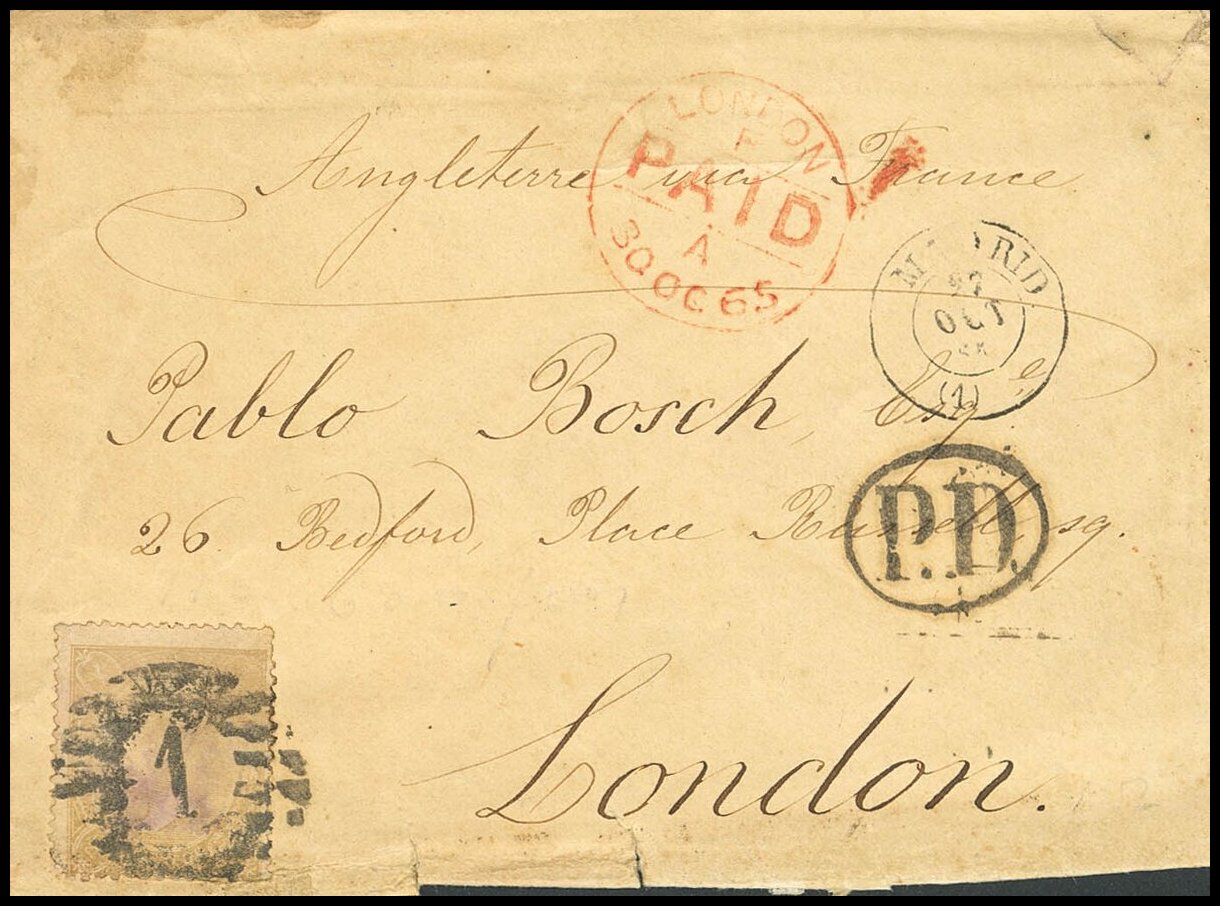 LONDON
F
PAID
A
30 OC 65
Angleterre via France
MADRID
27
OCT
(1)
Pablo Bosch, Esqre
26 Bedford, Place Russell, sq.
P.D.
1
London.